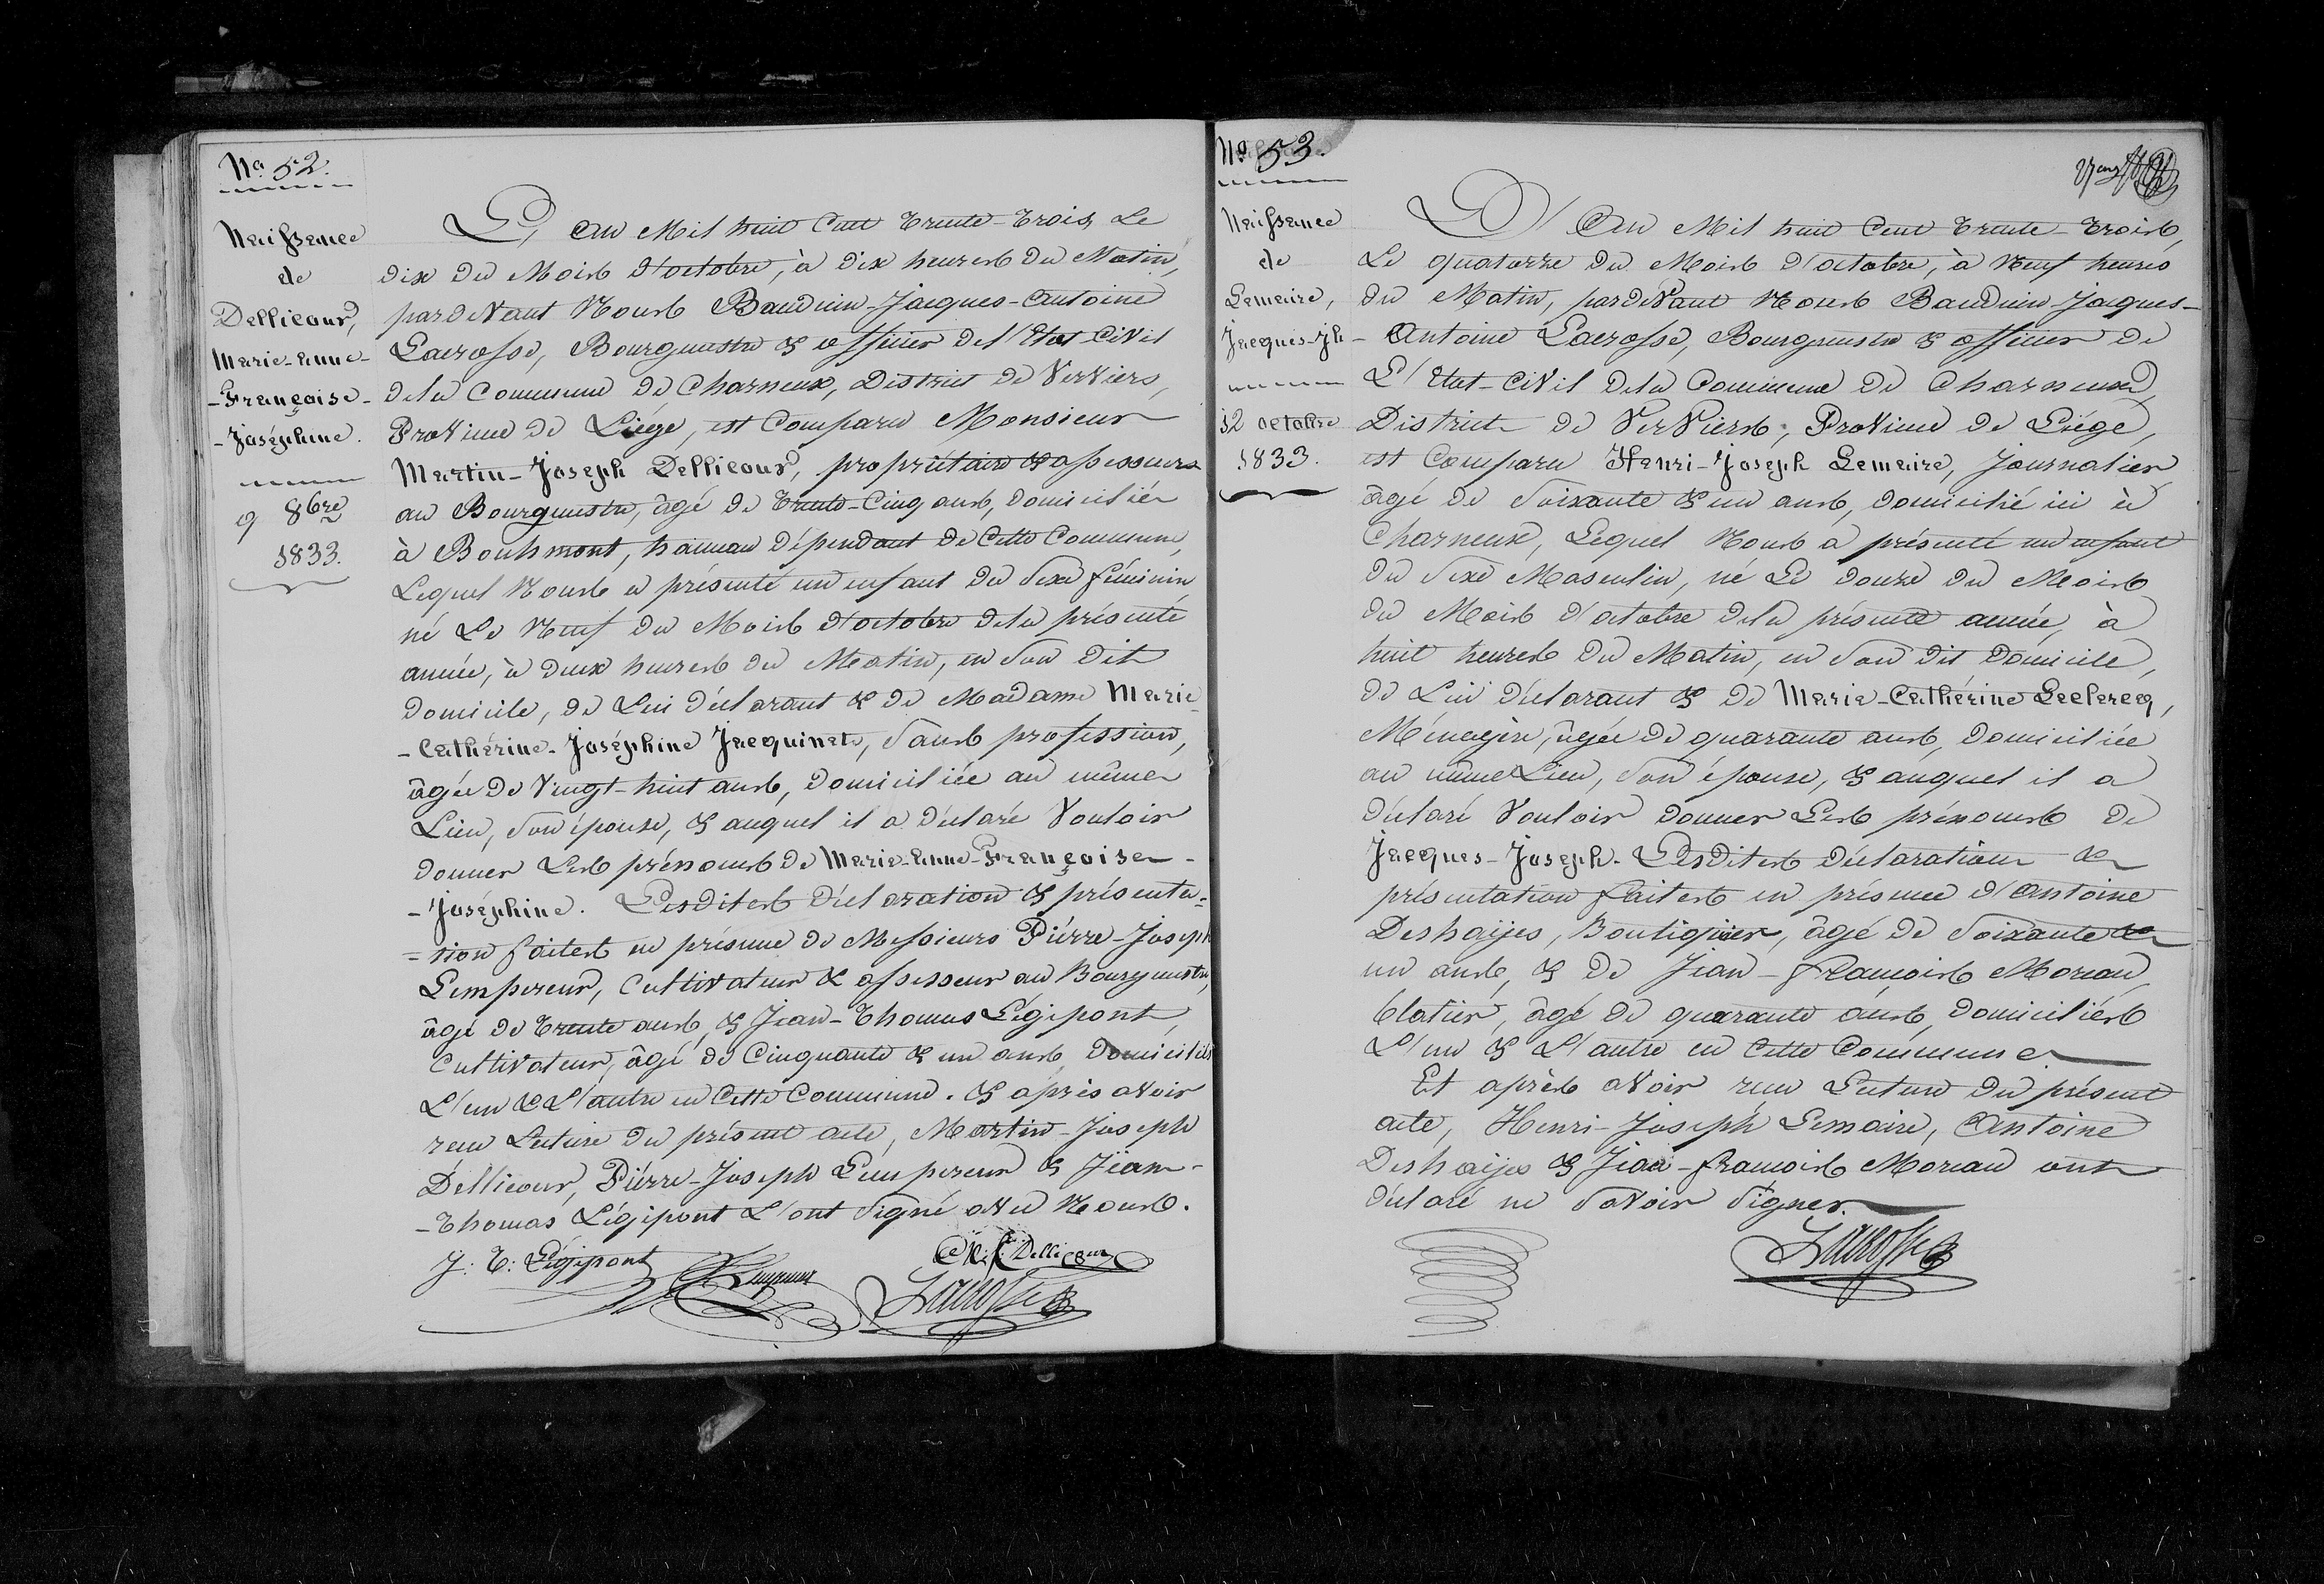 No. 52.
Naissance
de
Dellicour,
Marie-Anne-
-Françoise-
-Joséphine.
9 8bre
1833.
L'An Mil huit Cent Trente-Trois, Le
dix du Mois d'octobre, à dix heures du Matin,
pardevant Nous Bauduin-Jacques-Antoine
Lacrosse, Bourgmestre & officier de l'Etat-Civil
de la Commune de Charneux, District de Verviers,
Province de Liége, est Comparu Monsieur
Martin-Joseph Dellicour, propriétaire & assesseur
au Bourgmestre, âgé de Trente-Cinq ans, domicilié
à Bouhmont, hameau dépendant de Cette Commune,
Lequel Nous a présenté un enfant du Sexe féminin
né Le Neuf du Mois d'octobre de la présente
année, à deux heures du Matin, en Son dit
Domicile, de Lui déclarant & de Madame Marie-
-Cathérine-Joséphine Jacquinet, Sans profession,
âgée de Vingt-huit ans, domiciliée au même
Lieu, Son épouse, & auquel il a déclaré Vouloir
donner Les prénoms de Marie-Anne-Françoise-
-Joséphine. Lesdites déclaration & présenta=
=tion faites en présence de Messieurs Piérre-Joseph
Lempereur, Cultivateur & assesseur au Bourgmestre,
âgé de Trente ans, & Jean-Thomas Légipont,
Cultivateur, âgé de Cinquante & un ans, Domiciliés
L'un & L'autre en Cette Commune. & après avoir
reçu Lecture du présent acte, Martin-Joseph
Dellicour, Piérre-Joseph Lempereur & Jean-
-Thomas Légipont L'ont Signé avec Nous.
J: T: Légipont
Lempereur
M: J: Dellicour
Lacrosse B
No 53.
Naissance
de
Lemaire,
Jacques-Jh
12 octobre
1833.
L'An Mil huit Cent Trente-Trois,
Le quatorze du Mois d'octobre, à Neuf heures
du Matin, pardevant Nous Bauduin-Jacques-
-Antoine Lacrosse, Bourgmestre & officier de
L'Etat-Civil de la Commune de Charneux,
District de Verviers, Province de Liége,
est Comparu Henri-Joseph Lemaire, Journalier
âgé de Soixante & un ans, domicilié ici à
Charneux, Lequel Nous a présenté un enfant
du Sexe Masculin, né Le douze du Mois
du Mois d'octobre de la présente année, à
huit heures du Matin, en Son dit Domicile,
de Lui déclarant & de Marie-Cathérine Leclercq,
Ménagère, âgée de quarante ans, Domiciliée
au même Lieu, Son épouse, & auquel il a
déclaré Vouloir donner Les prénoms de
Jacques-Joseph. Lesdites déclaration &
présentation faites en présence d'Antoine
Deshaijes, Boutiquier, âgé de Soixante &
un ans, & de Jean-François Moreau,
Clatier, âgé de quarante ans, domiciliés
L'un & L'autre en Cette Commune
Et après avoir reçu Lecture du présent
acte, Henri-Joseph Lemaire, Antoine
Deshaijes & Jean-François Moreau ont
déclaré ne Savoir Signer.
Lacrosse B